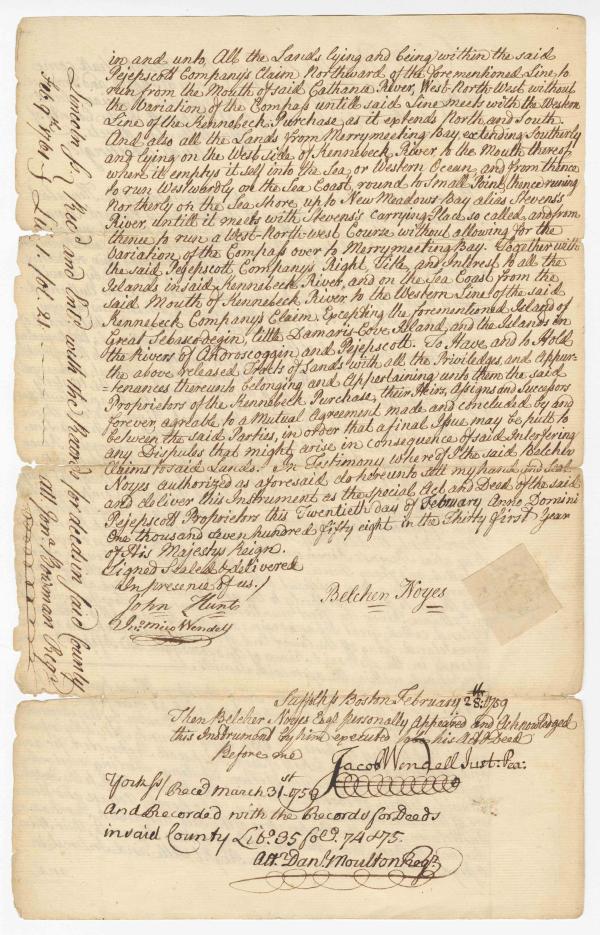 in and unto, All the Lands lying and being within the said
Pejepscott Company's Claim Northward of the forementioned Line to
run from the Mouth of said Cathana River, West-North-West without
the Variation of the Compass untill said Line meets with the Western
Line of the Kennebeck Purchase as it extends North and South
And also all the Lands from Merrymeeting Bay, extending Southerly
and lying on the West Side of Kennebeck River to the Mouth thereof
where it emptys it self into the Sea or Western Ocean, and from thence
to run Westwardly on the Sea Coast, round to Small Point, thence runing
Northerly on the Sea Shore up to New Meadows Bay alias Stevens's
River, untill it meets with Stevens's carrying Place so called, and from
thence to run a West-North-west Course without allowing for the
Variation of the Compass over to Merrymeeting Bay. Together with
the said Pejepscott Company's Right, Title and Interest to all the
Islands in said Kennebeck River, and on the Sea Coast from the
said Mouth of Kennebeck River to the Western Line of the said
Kennebeck Company's Claim. Excepting the forementioned Island of
Great Sebascodegin, little Damaris Cove Island, and the Islands in
the Rivers of Androscoggin and Pejepscott. To Have and to Hold
the above released Tracts of Lands with all the Priviledges, and Appur-
-tenances thereunto belonging and Appertaining unto them the said
Proprietors of the Kennebeck Purchase, their Heirs, Assigns and Successors
forever, agreable to a Mutual Agreement made and concluded by and
between the said Parties, in order that a final Issue may be put to
any Disputes that might arise in consequence of said Interfering
Claims to said Lands. In Testimony where of I the said Belcher
Noyes authorized as aforesaid do hereunto Sett my hand and Seal
and deliver this Instrument as the Special Act and Deed of the said
Pejepscott Proprietors this Twentieth day of February Anno Domini
One thousand seven hundred fifty eight in the Thirty first Year
of His Majestys Reign.
Signed Sealed & delivered
In presence of us.
John Hunt
Jno. Mico Wendell
Belcher Noyes
Suffolk ss Boston February 28th. 1759
Then Belcher Noyes Esqr. personally appeared and Acknowledged
this Instrument by him executed to be his Act & Deed
Before me
Jacob Wendell Just: Pea:
York ss/ Recd. March 31st 1759
and Recorded with the Records for Deeds
in said County Libo. 35 folo. 74 & 75.
Attr. Danl. Moulton Regr.
Lincoln ss. Recd. and Entd. with the Records for deeds in said County
Feby. 9th 1761 Lib 1. fol. 21
att Jonn. Bowman Regr.